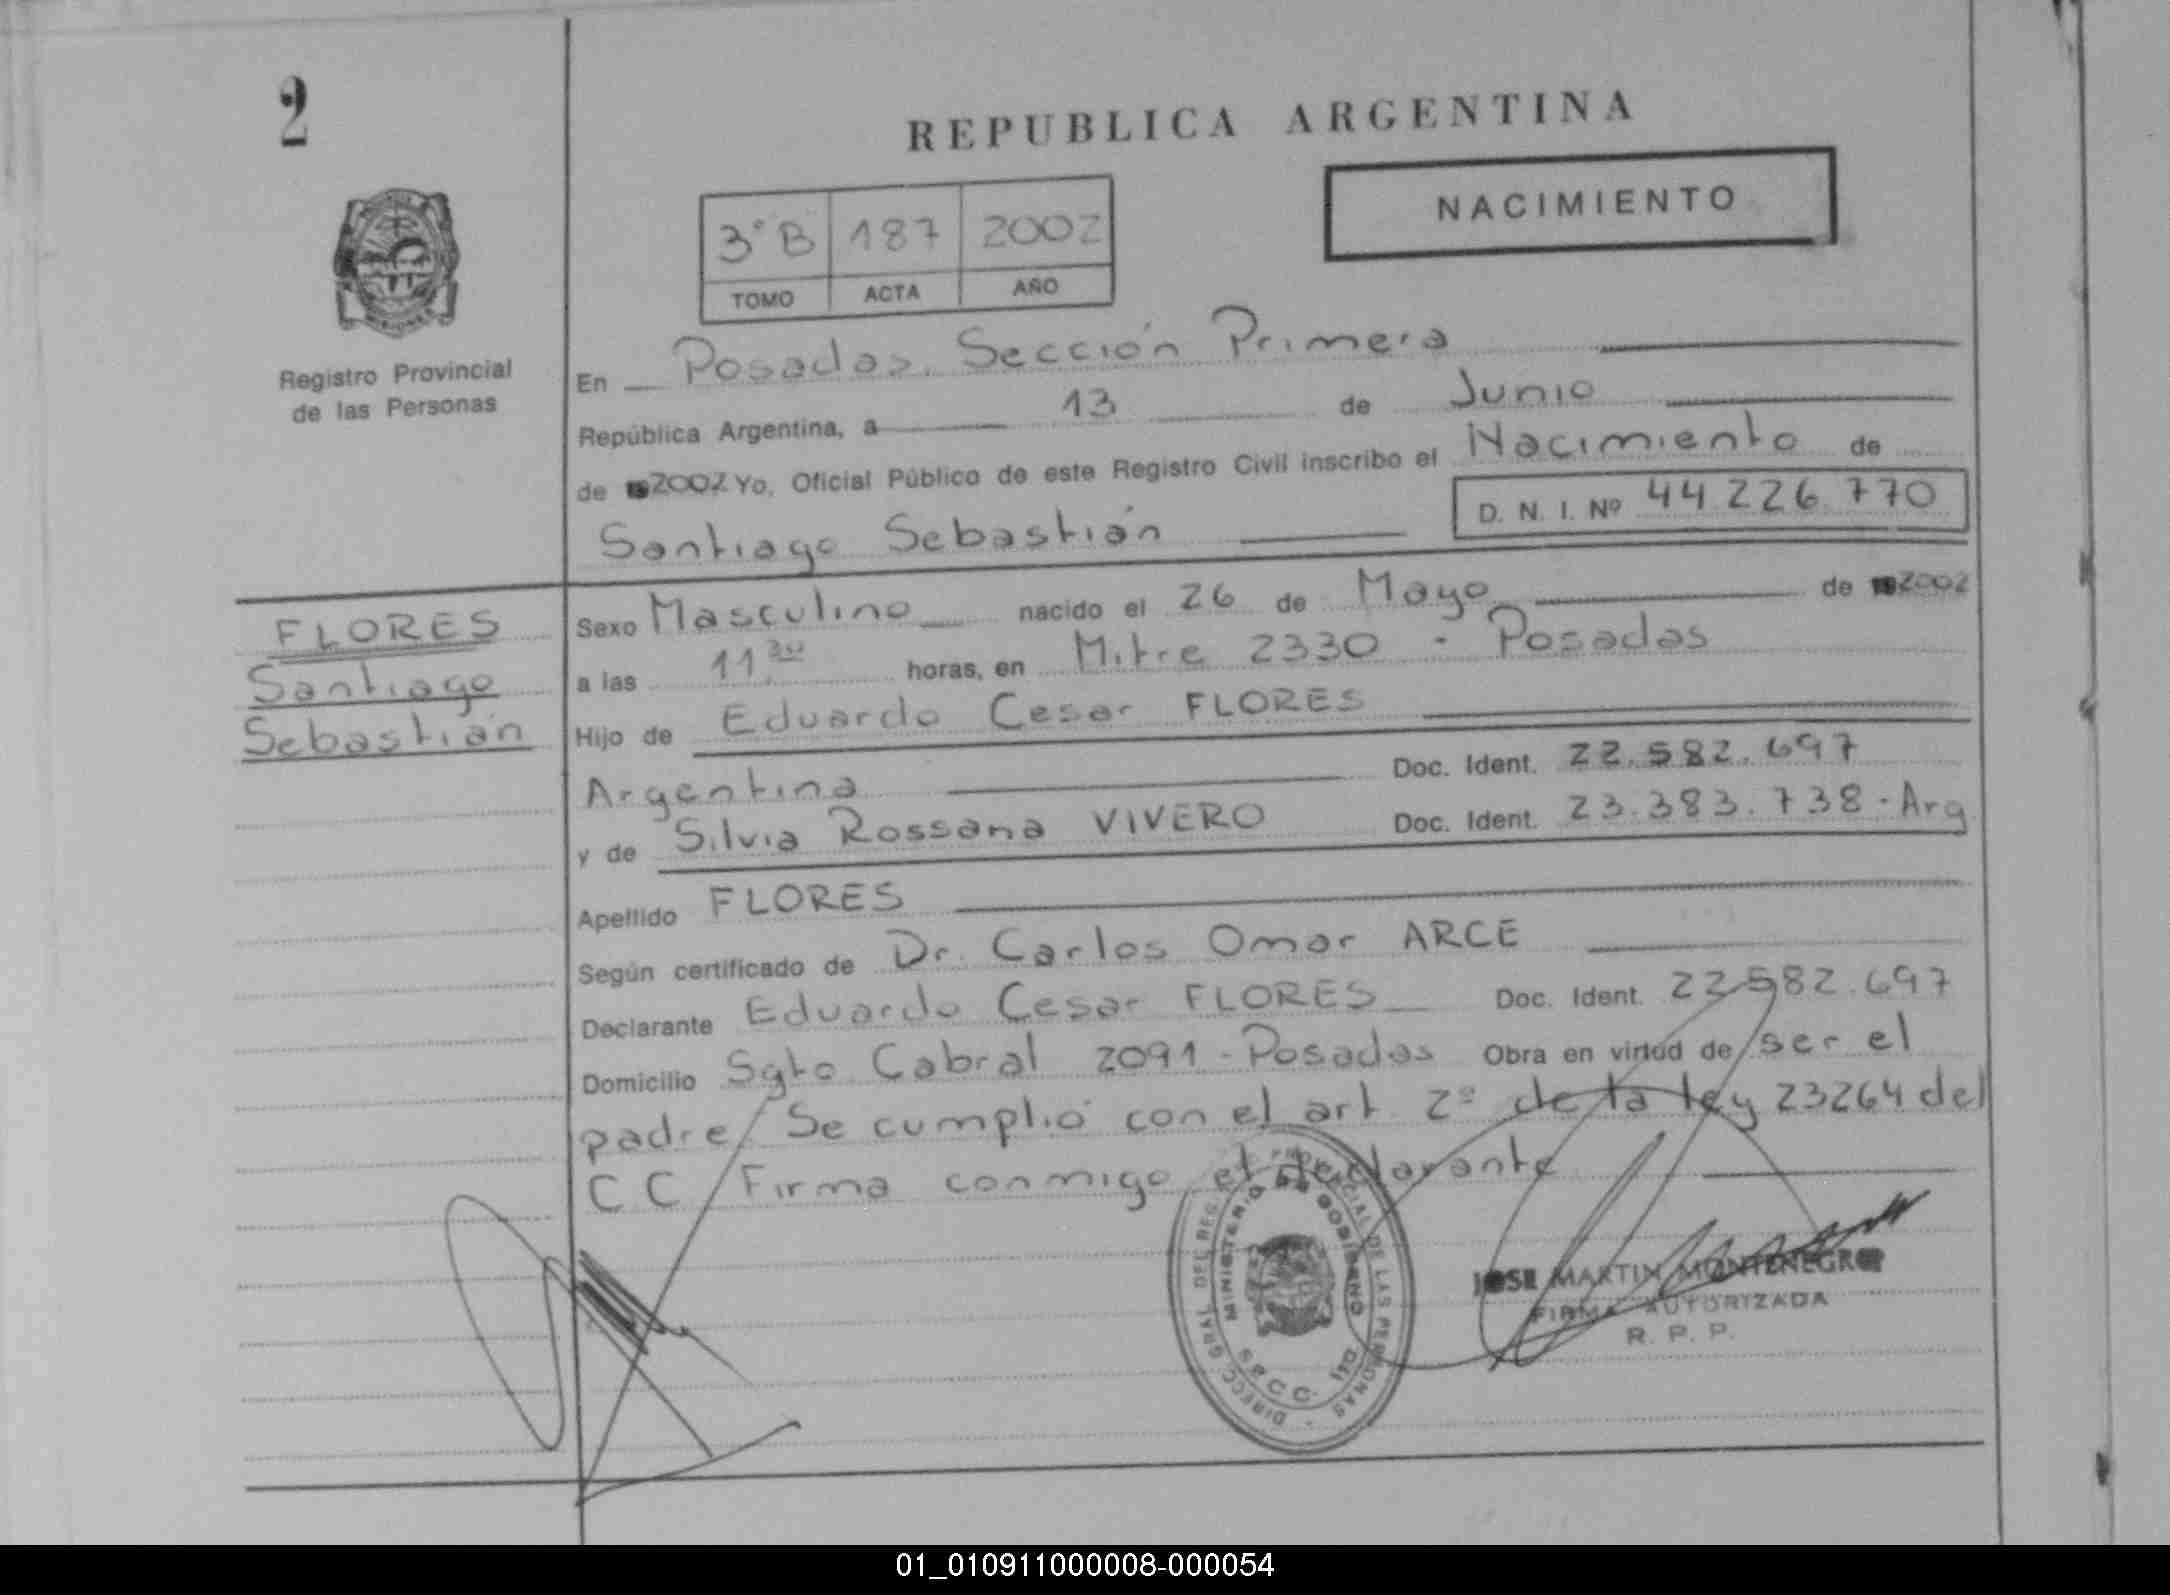 2
REPUBLICA ARGENTINA
NACIMIENTO
3° B 187 2002
TOMO ACTA AÑO
MISIONES
Registro Provincial
de las Personas
En Posadas, Sección Primera
República Argentina, a 13 de Junio
de 2002 Yo, Oficial Público de este Registro Civil inscribo el Nacimiento de
Santiago Sebastián D. N. I. Nº 44.226.770
FLORES
Santiago
Sebastián
Sexo Masculino nacido el 26 de Mayo de 2002
a las 11 30 horas, en Mitre 2330 - Posadas
Hijo de Eduardo Cesar FLORES
Argentina Doc. Ident. 22.582.697
y de Silvia Rossana VIVERO Doc. Ident. 23.383.738 - Arg
Apellido FLORES
Según certificado de Dr. Carlos Omar ARCE
Declarante Eduardo Cesar FLORES Doc. Ident. 22.582.697
Domicilio Sgto Cabral 2091 - Posadas Obra en virtud de ser el
padre. Se cumplió con el art. 2º de la ley 23264 del
C C Firma conmigo el declarante
DIRECC. GRAL. DEL REG. PROVINCIAL DE LAS PERSONAS
MINISTERIO DE GOBIERNO
JOSE MARTIN MONTENEGRO
FIRMA AUTORIZADA
R. P. P.
01_010911000008-000054